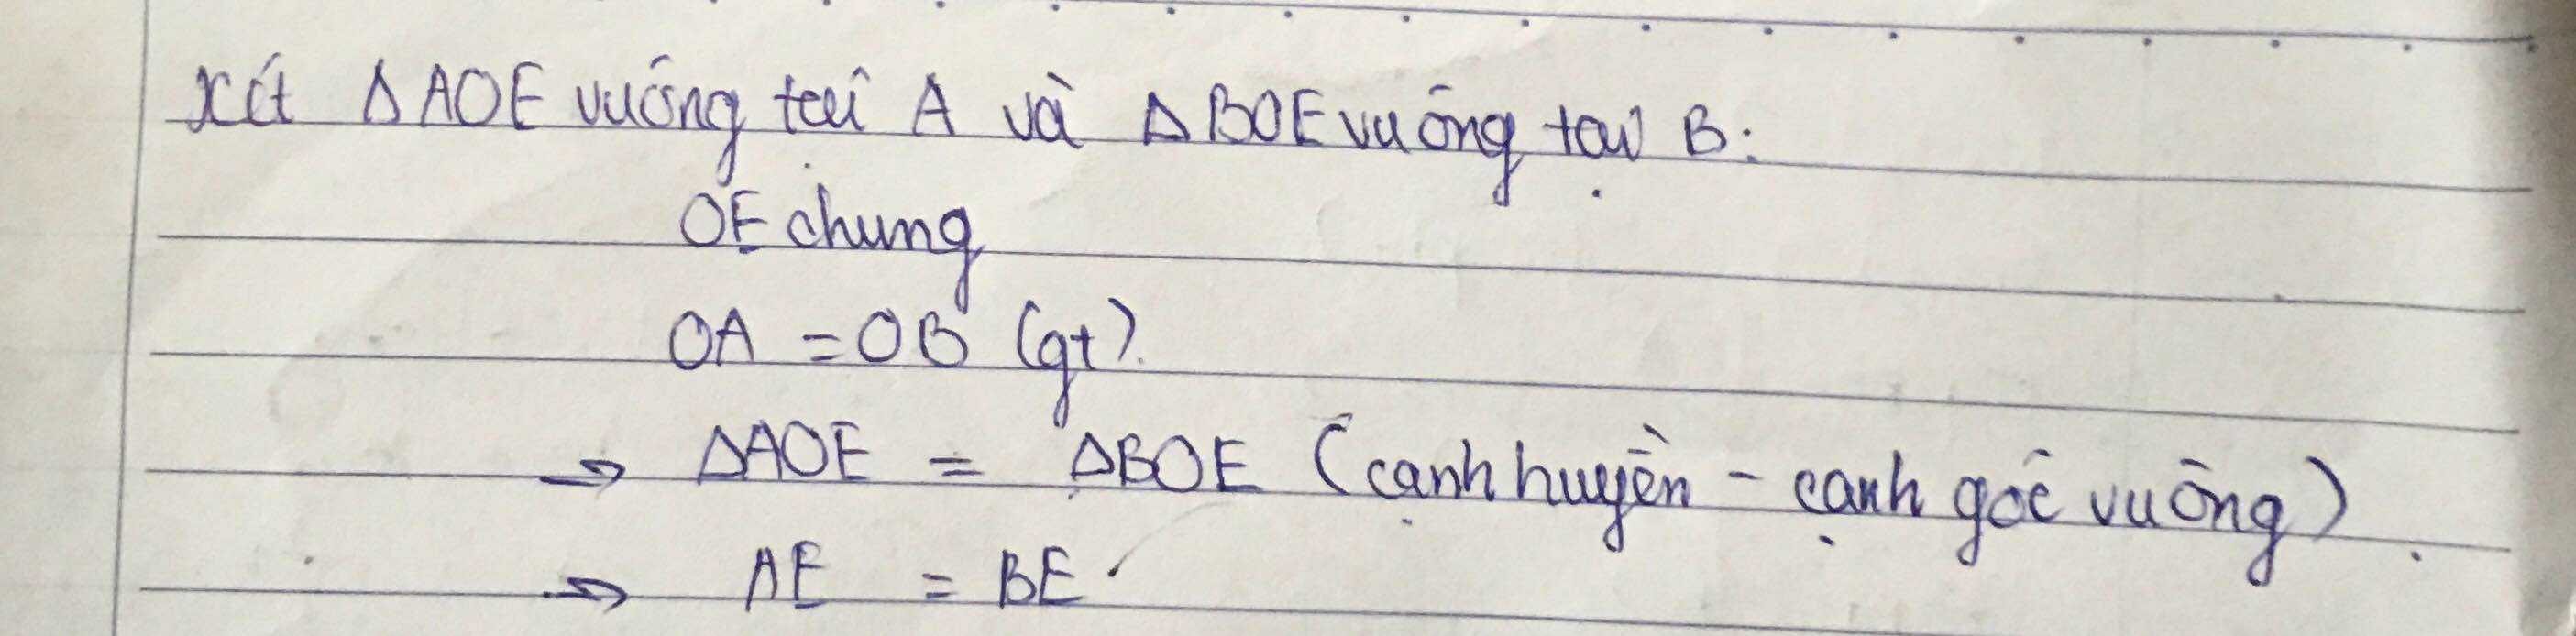 Xét ΔAOE vuông tại A và ΔBOE vuông tại B:
OE chung
OA = OB (gt).
⇒ ΔAOE = ΔBOE (cạnh huyền - cạnh góc vuông).
⇒ AE = BE